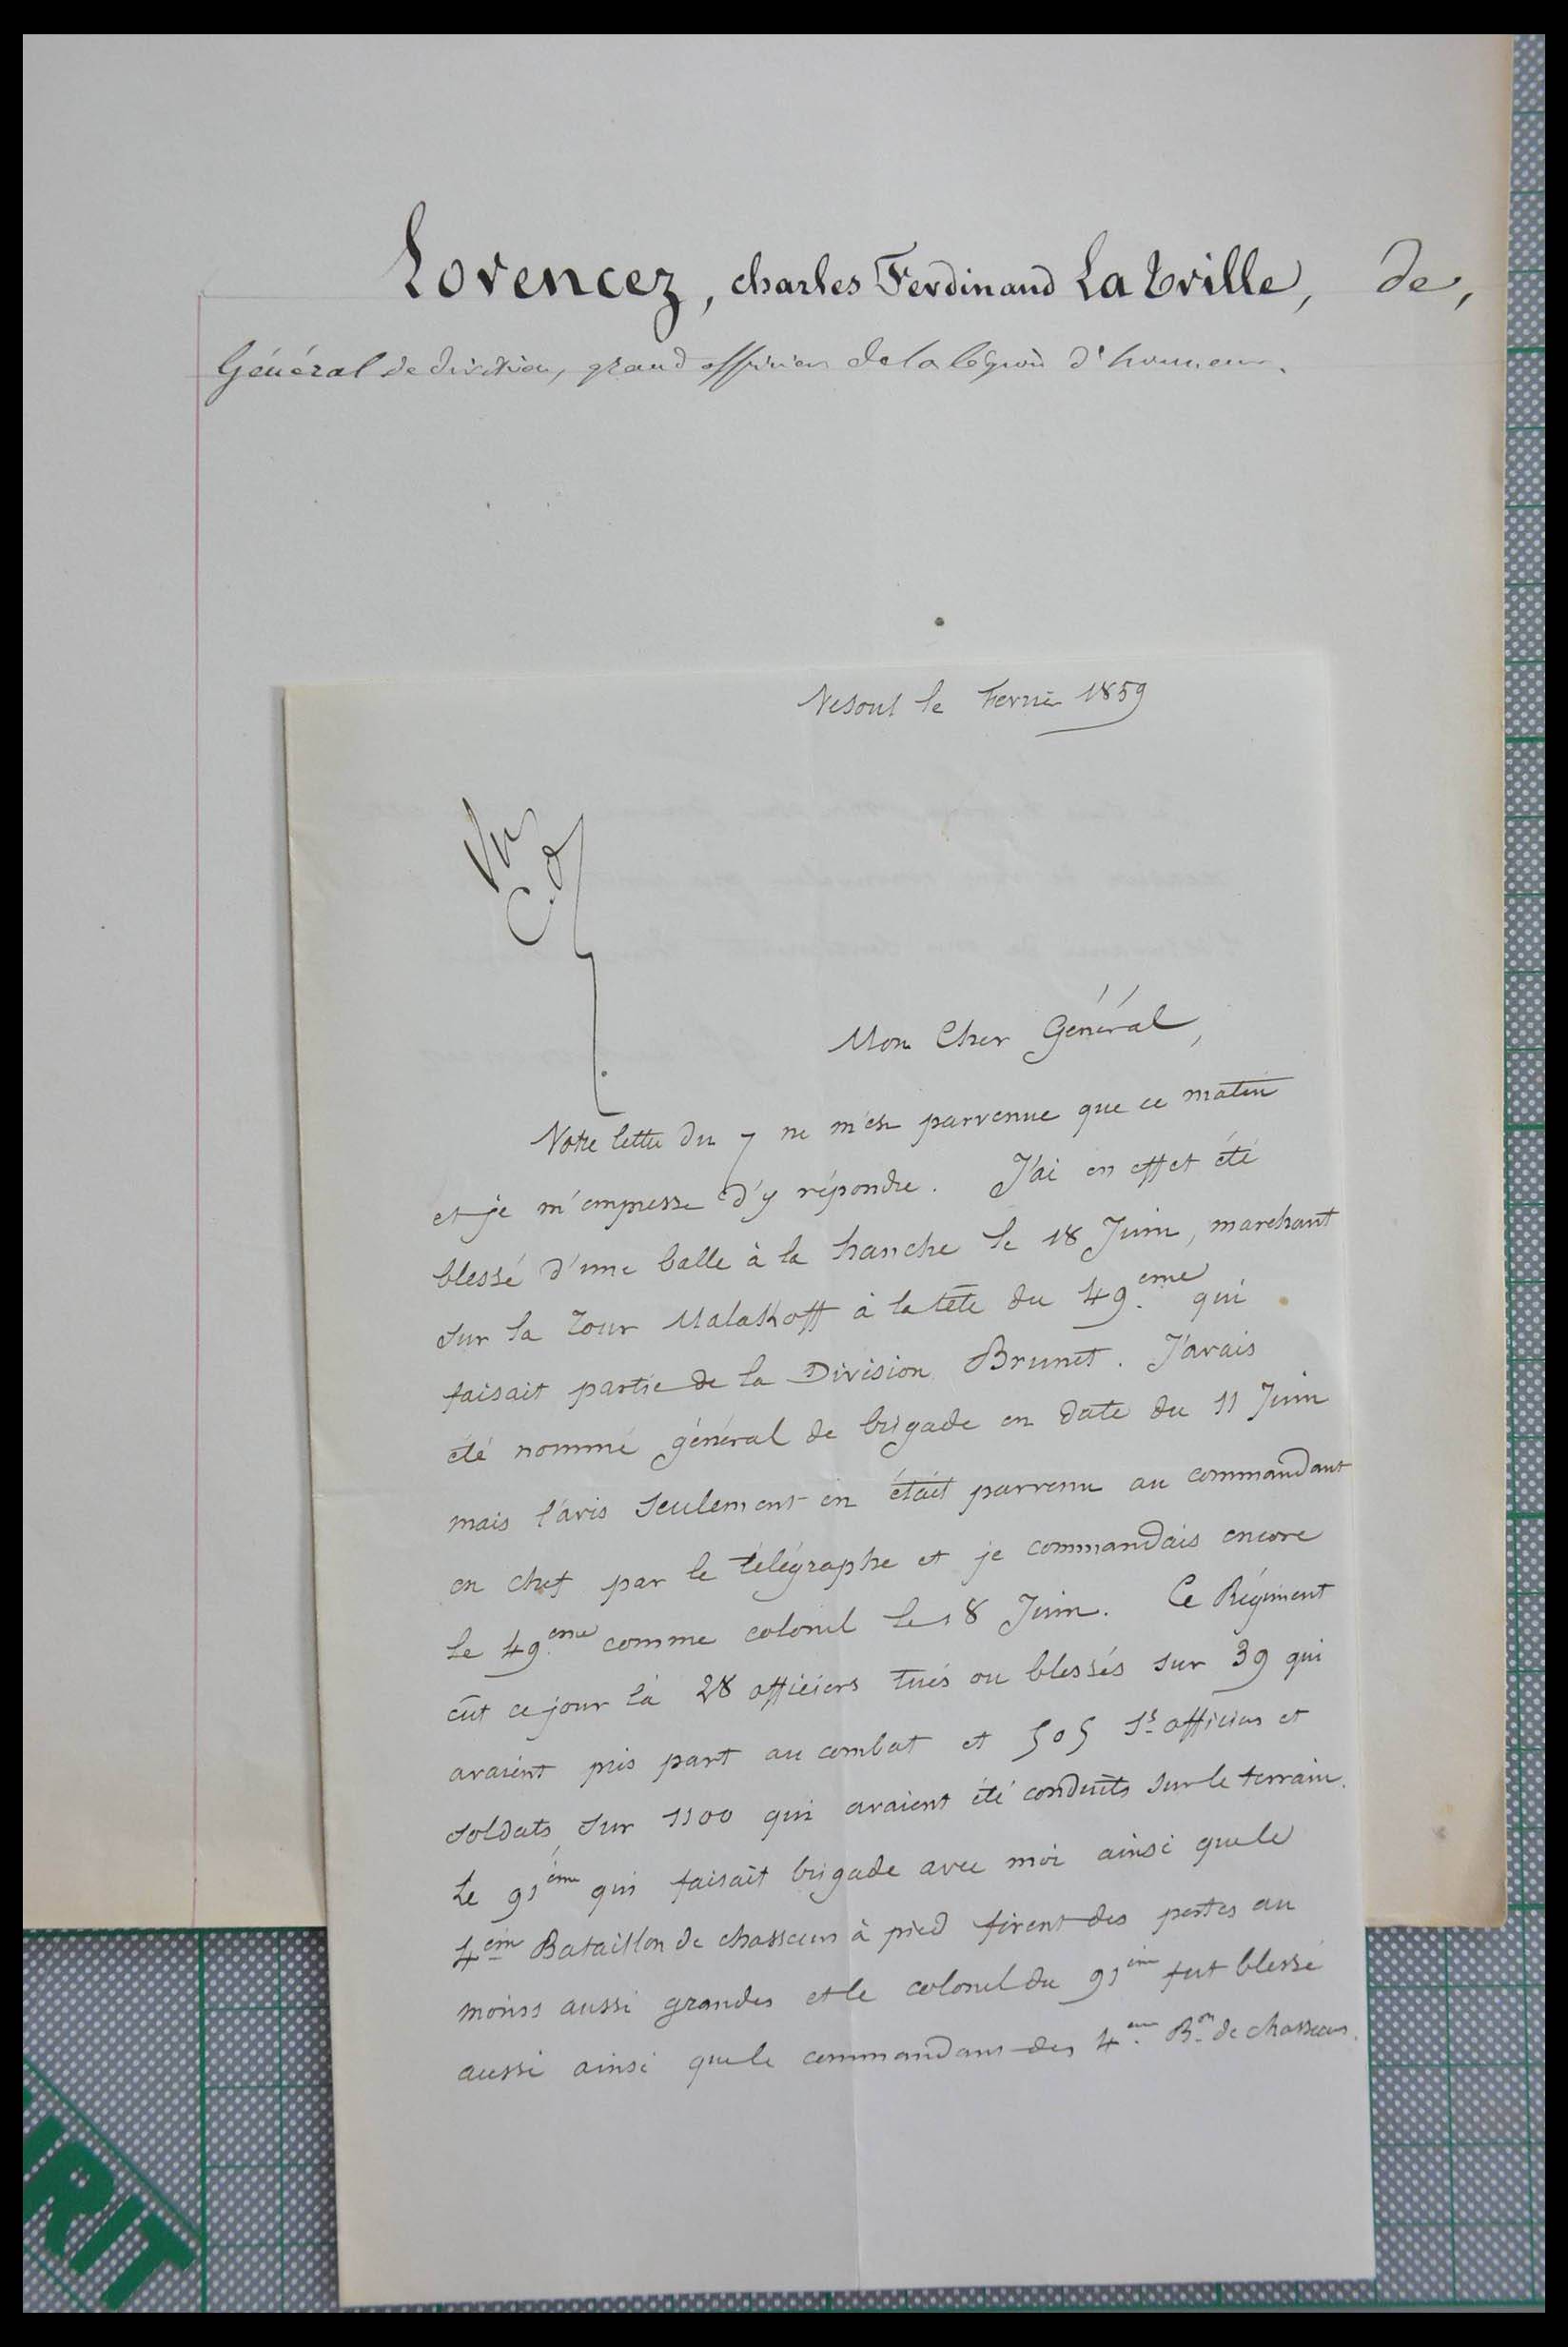 Lorencez, charles Ferdinand La trille, de,
Général de division, grand officier de la légion d'honneur.
Vesoul le Fevrier 1859
Vu
Mon Cher Général,
Votre lettre du 7 ne m'est parvenue que ce matin
et je m'empresse d'y répondre. J'ai en effet été
blessé d'une balle à la hanche le 18 Juin, marchant
sur la Tour Malakoff à la tête du 49.eme qui
faisait partie de la Division Brunet. J'avais
été nommé général de brigade en date du 11 Juin
mais l'avis seulement en était parvenu au commandant
en chef par le télégraphe et je commandais encore
le 49.eme comme colonel le 18 Juin. Ce Régiment
eut ce jour là 28 officiers tués ou blessés sur 39 qui
avaient pris part au combat et 505 Ss officiers et
soldats, sur 1100 qui avaient été conduits sur le terrain.
Le 91ème qui faisait brigade avec moi ainsi que le
4eme Bataillon de chasseurs à pied firent des pertes au
moins aussi grandes et le colonel du 91ème fut blessé
aussi ainsi que le commandant des 4.eme Bon de chasseurs.
RIT